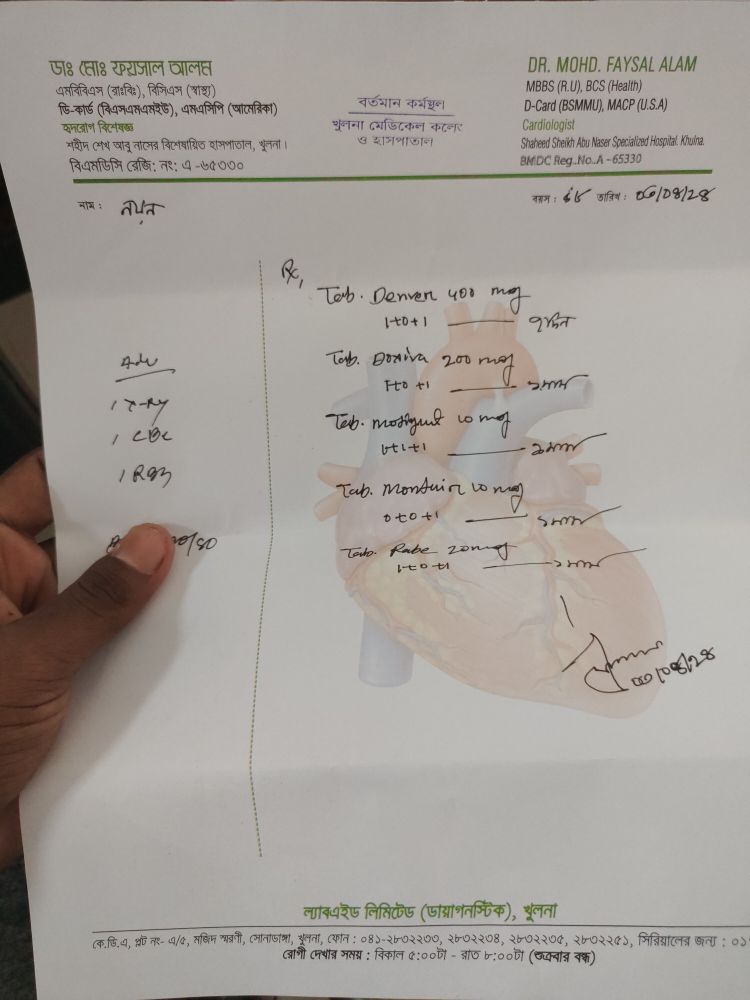 ডাঃ মোঃ ফয়সাল আলম
এমবিবিএস (রাঃবিঃ), বিসিএস (স্বাস্থ্য)
ডি-কার্ড (বিএসএমএমইউ), এমএসিপি (আমেরিকা)
হৃদরোগ বিশেষজ্ঞ
শহীদ শেখ আবু নাসের বিশেষায়িত হাসপাতাল, খুলনা।
বিএমডিসি রেজি: নং: এ -৬৫৩৩০
বর্তমান কর্মস্থল
খুলনা মেডিকেল কলেজ
ও হাসপাতাল
DR. MOHD. FAYSAL ALAM
MBBS (R.U), BCS (Health)
D-Card (BSMMU), MACP (U.S.A)
Cardiologist
Shaheed Sheikh Abu Naser Specialized Hospital. Khulna.
BMDC Reg. No. A -65330
নাম :
বয়স : তারিখ :
Adv
X-Ray
CBC
RBS
Rx,
Tab. 400 mg
1+0+1
Tab. Doxiva 200 mg
1+0+1
Tab. 10 mg
1+1+1
Tab. 10 mg
0+0+1
Tab. Rabe 20 mg
1+0+1
ল্যাবএইড লিমিটেড (ডায়াগনস্টিক), খুলনা
কে.ডি.এ, প্লট নং- এ/৫, মজিদ স্মরণী, সোনাডাঙ্গা, খুলনা, ফোন : ০৪১-২৮৩২২৩৩, ২৮৩২২৩৪, ২৮৩২২৩৫, ২৮৩২২৫১, সিরিয়ালের জন্য :
রোগী দেখার সময় : বিকাল ৫:০০টা - রাত ৮:০০টা (শুক্রবার বন্ধ)